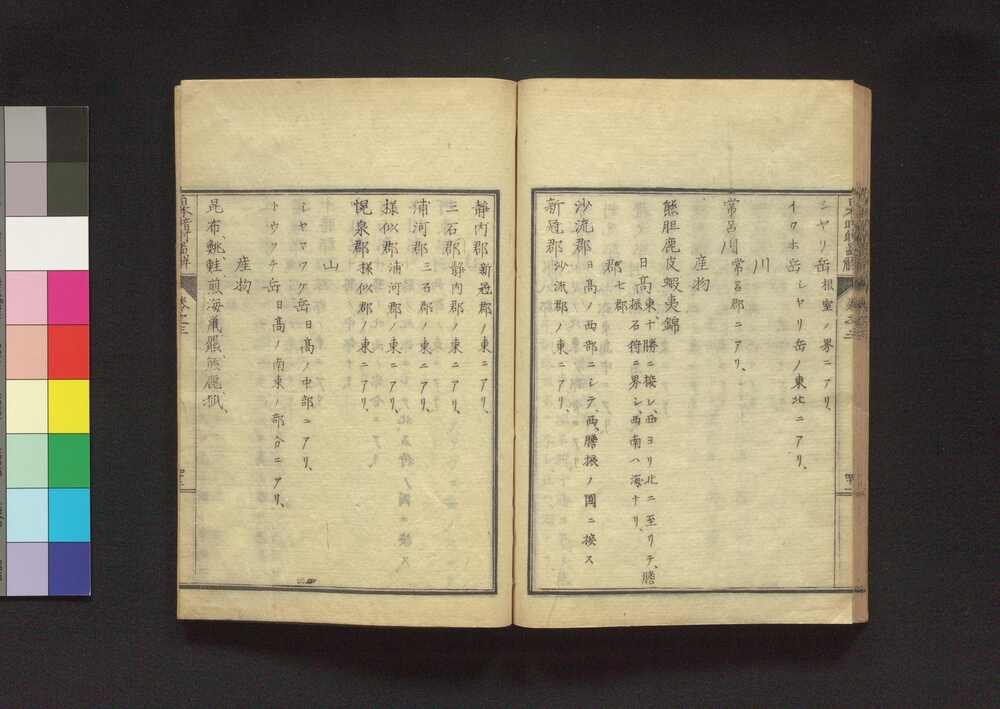 シヤリ岳 根室ノ界ニアリ、
イワホ岳 シヤリ岳ノ東北ニアリ、
川
常呂川 常呂郡ニアリ、
産物
熊胆鹿皮蝦夷錦
日高 東十勝ニ接シ、西ヨリ北ニ至リテ、膽
振石狩ニ界シ、西南ハ海ナリ、
郡 七郡
沙流郡 日高ノ西部ニシテ、西、膽振ノ國ニ接ス
新冠郡 沙流郡ノ東ニアリ、
静内郡 新冠郡ノ東ニアリ、
三石郡 静内郡ノ東ニアリ、
浦河郡 三石郡ノ東ニアリ、
様似郡 浦河郡ノ東ニアリ、
幌泉郡 様似郡ノ東ニアリ、
山
シヤマワケ岳 日高ノ中部ニアリ、
トウツチ岳 日高ノ南東ノ部分ニアリ、
産物
昆布、鮭、煎海鼠、熊、鹿、狐、
巻之三